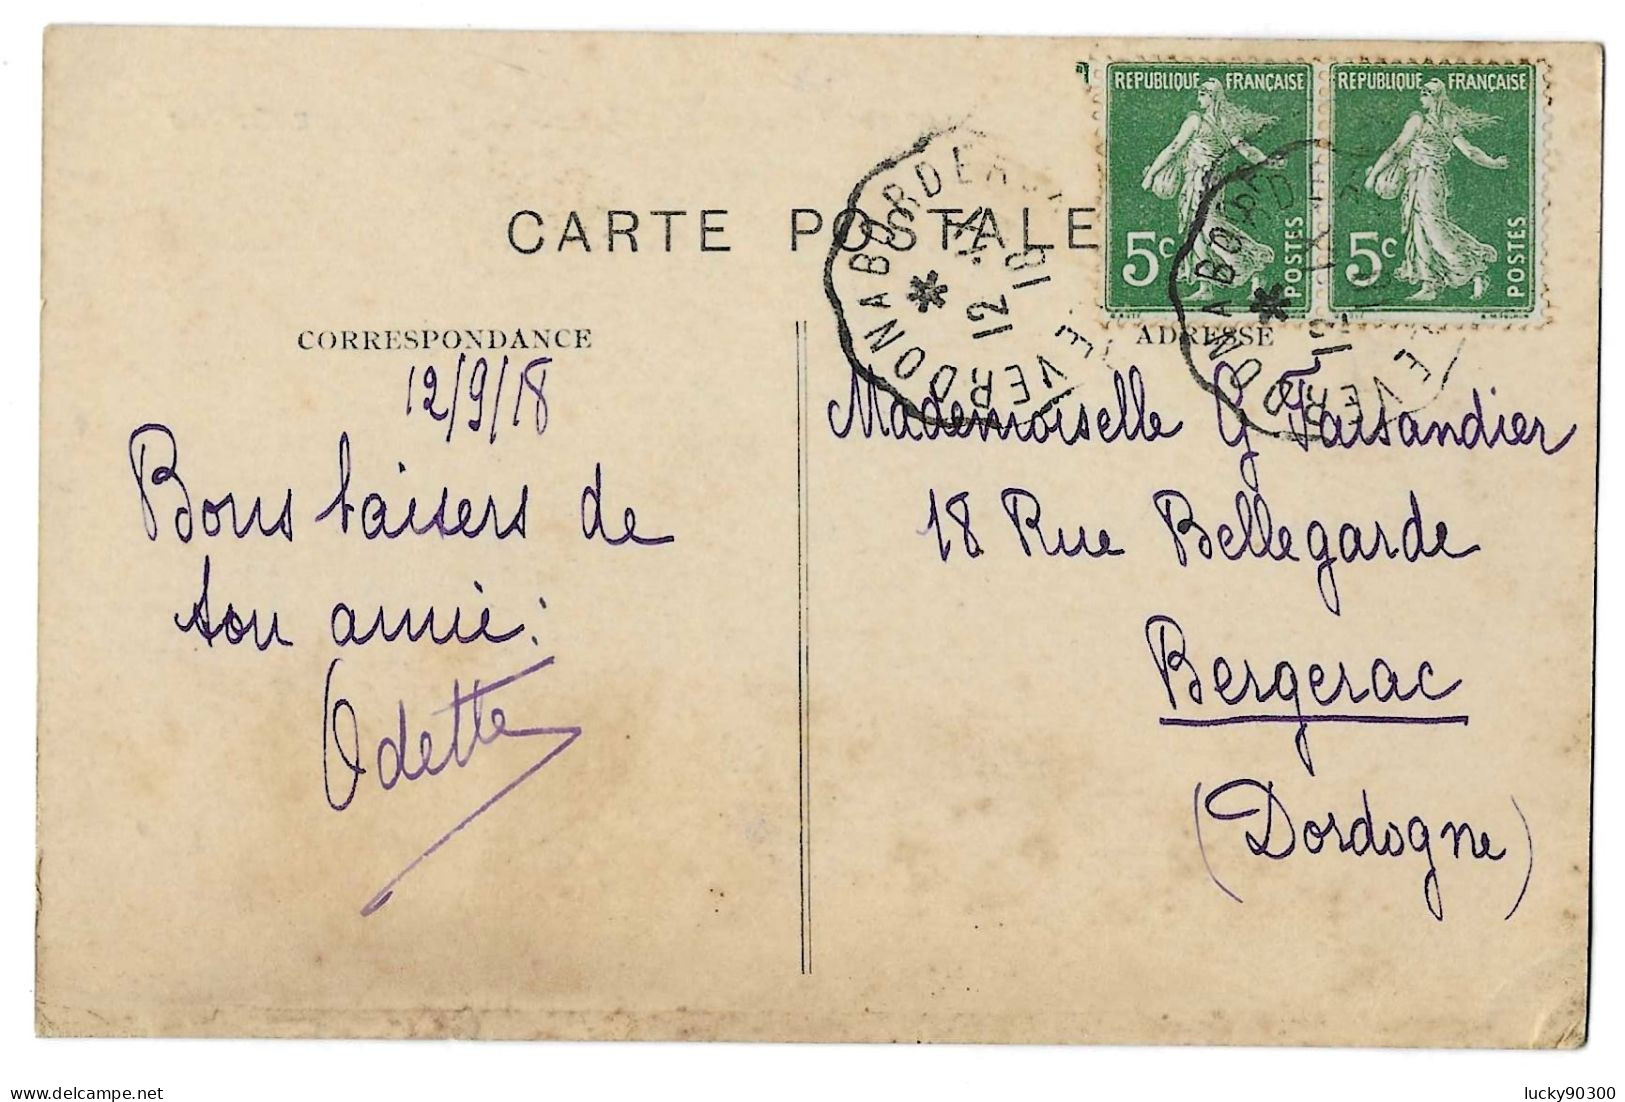 REPUBLIQUE FRANÇAISE
5c POSTES
REPUBLIQUE FRANÇAISE
5c POSTES
CARTE POSTALE
LE VERDON A BORDEAUX
12 - IX 18
LE VERDON A BORD
12 - IX
CORRESPONDANCE
ADRESSE
12/9/18
Bons baisers de
ton amie:
Odette
Mademoiselle G Faisandier
18 Rue Bellegarde
Bergerac
(Dordogne)
delcampe.net
lucky90300